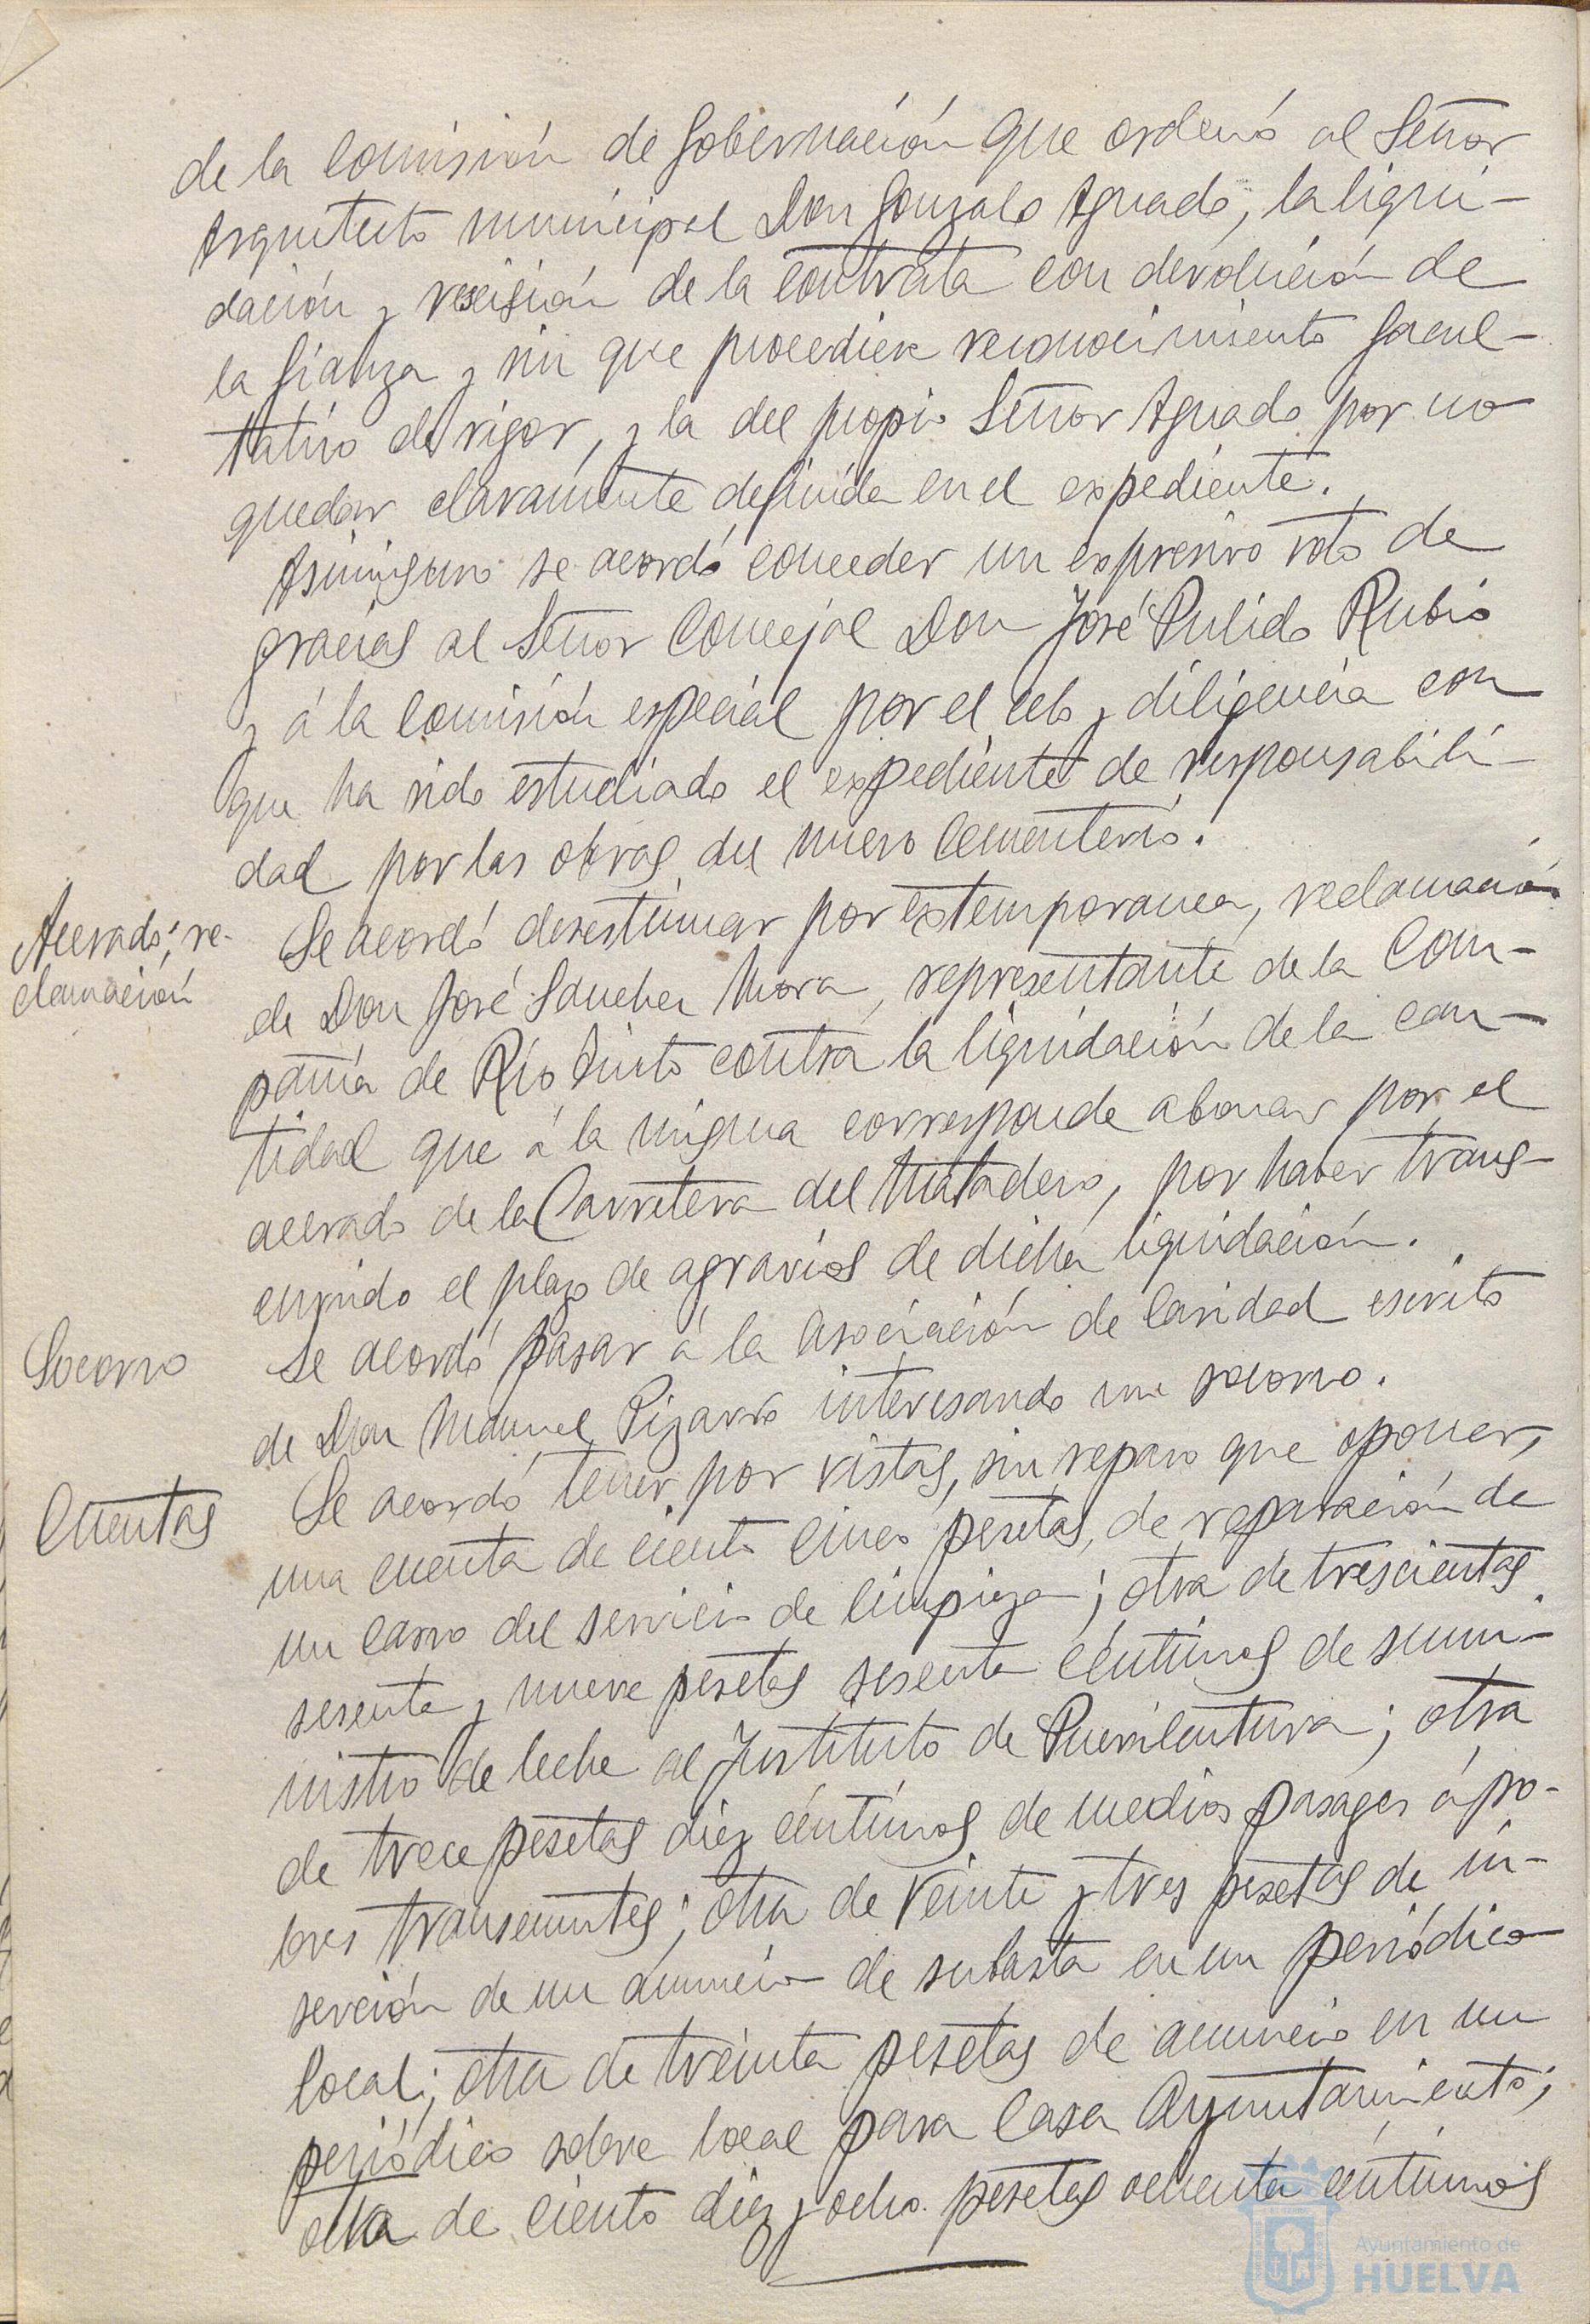 de la Comisión de Gobernación que ordenó al Señor
Arquitecto municipal Don Gonzalo Aguado, la liqui-
dación y rescisión de la contrata con devolución de
la fianza y sin que procediere reconocimiento facul-
tativo de rigor, y la del propio Señor Aguado por no
quedar claramente definida en el expediente.
Asimismo se acordó conceder un expresivo voto de
gracias al Señor Concejal Don José Pulido Rubio
y á la Comisión especial por el celo y diligencia con
que ha sido estudiado el expediente de responsabili-
dad por las obras del nuevo Cementerio.
Acerado; re-
clamación
Se acordó desestimar por extemporanea, reclamación
de Don José Sanchez Mora, representante de la Com-
pañía de Río Tinto contra la liquidación de la can-
tidad que á la misma corresponde abonar por el
acerado de la Carretera del Matadero, por haber trans-
currido el plazo de agravios de dicha liquidación.
Socorro
Se acordó pasar á la Asociación de Caridad escrito
de Don Manuel Pizarro interesando un socorro.
Cuentas
Se acordó tener por vistas, sin reparo que oponer,
una cuenta de ciento cinco pesetas, de reparación de
un carro del servicio de limpieza; otra de trescientas
sesenta y nueve pesetas sesenta céntimos de sumi-
nistro de leche al Instituto de Puericultura; otra
de trece pesetas diez céntimos de medios pasages á po-
bres transeuntes; otra de veinte y tres pesetas de in-
serción de un anuncio de subasta en un periódico
local; otra de treinta pesetas de anuncio en un
periódico sobre local para Casa Ayuntamiento;
otra de ciento diez y ocho pesetas ochenta céntimos
Ayuntamiento de
HUELVA